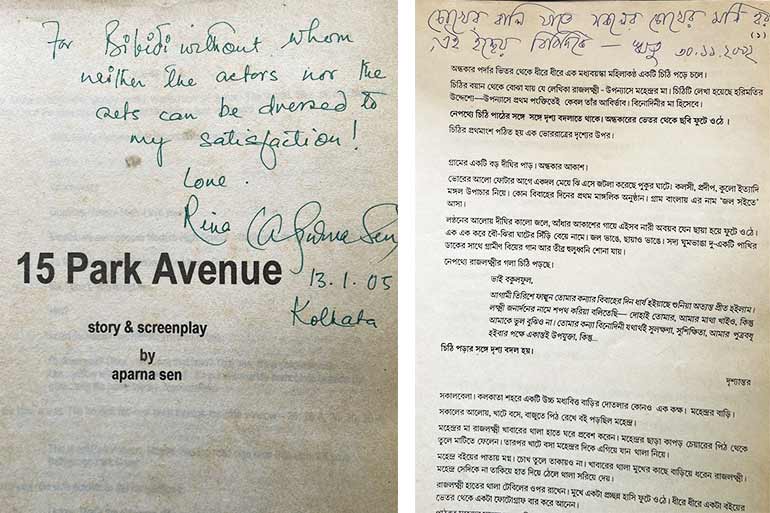 For Bibidi without whom
neither the actors nor the
sets can be dressed to
my satisfaction!
Love.
Rina (Aparna Sen)
13.1.05
Kolkata
15 Park Avenue
story & screenplay
by
aparna sen
চোখের বালি যাতে সকলের চোখের মণি হয়
এই ইচ্ছেয় বিবিদিকে — ঋতু ৩০.১১.২০০২
(১)
অন্ধকার পর্দার ভিতর থেকে ধীরে ধীরে এক মধ্যবয়স্কা মহিলাকণ্ঠ একটি চিঠি পড়ে চলে।
চিঠির বয়ান থেকে বোঝা যায় যে লেখিকা রাজলক্ষ্মী - উপন্যাসে মহেন্দ্রর মা। চিঠিটি লেখা হয়েছে হরিমতির
উদ্দেশ্যে—উপন্যাসে প্রথম পংক্তিতেই কেবল তাঁর আবির্ভাব। বিনোদিনীর মা হিসেবে।
নেপথ্যে চিঠি পাঠের সঙ্গে সঙ্গে দৃশ্য বদলাতে থাকে। অন্ধকারের ভেতর থেকে ছবি ফুটে ওঠে।
চিঠির প্রথমাংশ পঠিত হয় এক ভোররাত্রের দৃশ্যের ওপর।
গ্রামের একটি বড় দীঘির পাড়। অন্ধকার আকাশ।
ভোরের আলো ফোটার আগে একদল মেয়ে ঝি এসে জটলা করেছে পুকুর ঘাটে। কলসী, প্রদীপ, কুলো ইত্যাদি
মঙ্গল উপাচার নিয়ে। কোন বিবাহের দিনের প্রথম মাঙ্গলিক অনুষ্ঠান। গ্রাম বাংলায় এর নাম 'জল সইতে'
আসা।
লণ্ঠনের আলোয় দীঘির কালো জলে, আঁধার আকাশের গায়ে এইসব নারী অবয়ব যেন ছায়া হয়ে ফুটে ওঠে।
এক এক করে বৌ-ঝিরা ঘাটের সিঁড়ি বেয়ে নামে। জল ভাঙে, ছায়াও ভাঙে। সদ্য ঘুমভাঙা দু-একটি পাখির
ডাকের সাথে গ্রামীণ বিয়ের গান আর তীব্র হুলুধ্বনি শোনা যায়।
নেপথ্যে রাজলক্ষ্মীর গলা চিঠি পড়ছে।
ভাই বকুলফুল,
আগামী তিরিশে ফাল্গুন তোমার কন্যার বিবাহের দিন ধার্য হইয়াছে শুনিয়া অত্যন্ত প্রীত হইলাম।
লক্ষ্মী জনার্দনের নামে শপথ করিয়া বলিতেছি— দোহাই তোমার, আমার মাথা খাইও, কিন্তু
আমাকে ভুল বুঝিও না। তোমার কন্যা বিনোদিনী যথার্থই সুলক্ষণা, সুশিক্ষিতা, আমার পুত্রবধূ
হইবার পক্ষে একান্তই উপযুক্তা, কিন্তু...
চিঠি পড়ার সঙ্গে দৃশ্য বদল হয়।
দৃশ্যান্তর
সকালবেলা। কলকাতা শহরে একটি উচ্চ মধ্যবিত্ত বাড়ির দোতলার কোনও এক কক্ষ। মহেন্দ্রর বাড়ি।
সকালের আলোয়, খাটে বসে, বাজুতে পিঠ রেখে বই পড়ছিল মহেন্দ্র।
মহেন্দ্রর মা রাজলক্ষ্মী খাবারের থালা হাতে ঘরে প্রবেশ করেন। মহেন্দ্রর ছাড়া কাপড় চেয়ারের পিঠ থেকে
তুলে মাটিতে ফেলেন। তারপর খাটে বসা মহেন্দ্রর দিকে এগিয়ে যান থালা নিয়ে।
মহেন্দ্র বইয়ের পাতায় মগ্ন। চোখ তুলে তাকায়ও না। খাবারের থালা মুখের কাছে বাড়িয়ে ধরেন রাজলক্ষ্মী।
মহেন্দ্র সেদিকে না তাকিয়ে হাত দিয়ে ঠেলে থালা সরিয়ে দেয়।
রাজলক্ষ্মী হাতের থালা টেবিলের ওপর রাখেন। মুখে একটা প্রচ্ছন্ন হাসি ফুটে ওঠে। ধীরে ধীরে একটা বইয়ের
ভেতর থেকে একটা ফোটোগ্রাফ বার করে আনেন।